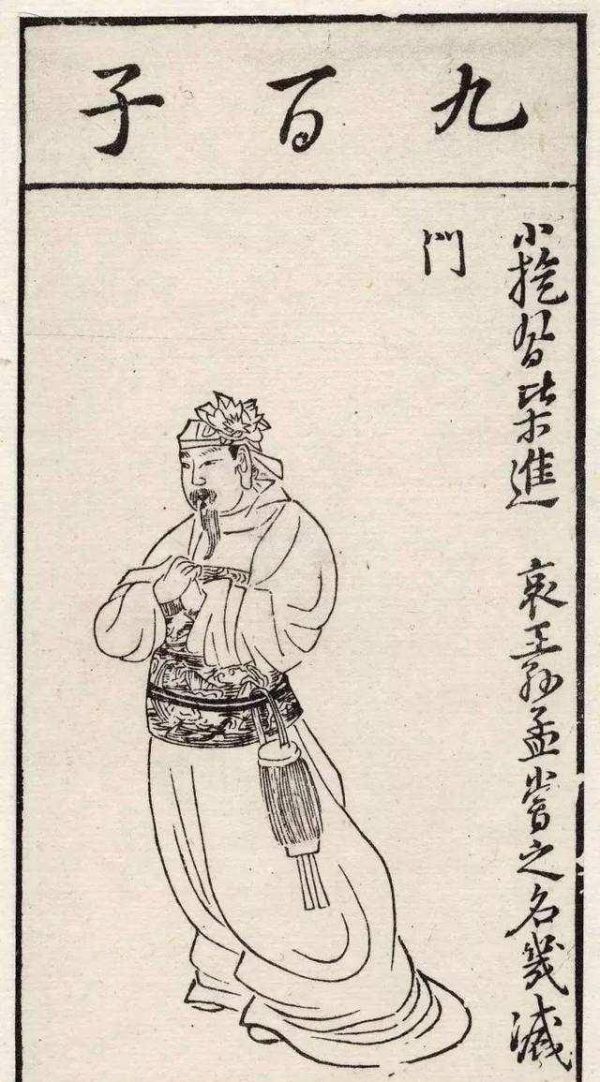 九百子
小旋風柴進 哀王孫孟嘗之名幾滅
門